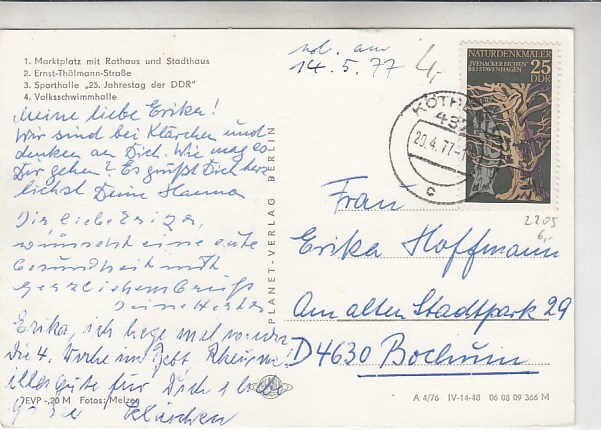 1. Marktplatz mit Rathaus und Stadthaus
2. Ernst-Thälmann-Straße
3. Sporthalle „25. Jahrestag der DDR"
4. Volksschwimmhalle
14. 5. 77
4,-
NATURDENKMÄLER
„IVENACKER EICHEN"
BEI STAVENHAGEN
25
DDR
KÖTHEN
20.4.77
c
2205
6,-
Meine liebe Erika!
Wir sind bei Klärchen und
denken an Dich. Wie mag es
Dir gehen? Es grüßt Dich herz
lichst Deine Hanna
Dir liebe Erika,
wünscht eine gute
Gesundheit mit
herzlichem Gruß
Deine
Erika, ich
die 4. Woche im Bett
alles gute für Dich
Klärchen
PLANET-VERLAG BERLIN
Frau
Erika Hoffmann
Am alten Stadtpark 29
D4630 Bochum
EVP -,20 M Fotos: Melzer
A 4/76 IV-14-48 06 08 09 366 M